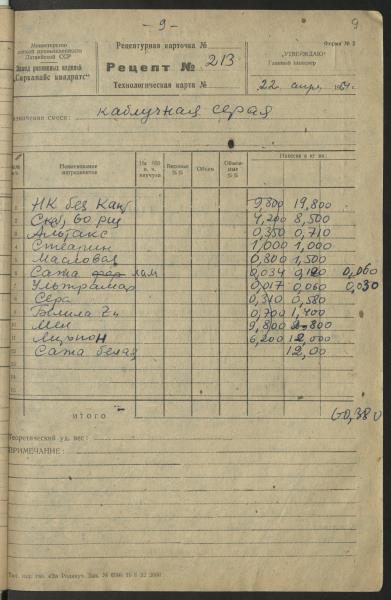 - 9 -
9
Министерство
легкой промышленности
Латвийской ССР
Завод резиновых изделий
„Сарканайс квадратс“
Рецептурная карточка №
Рецепт № 213
Технологическая карта №
Форма № 2
„УТВЕРЖДАЮ“
Главный инженер
22 апр. 19
каблучная серая
Наименование
ингредиентов
На 100
в. ч.
каучука
Весовые
%%
Объем
Объем-
ные
%%
Навески в кг на:
1 НК без Кан 9,800 19,800
2 4,200 8,500
3 Альтакс 0,350 0,710
4 Стеарин 1,000 1,000
5 0,800 1,500
6 Сажа лам 0,034 0,060
7 Ультрамар 0,017 0,060 0,030
8 Сера 0,310 0,580
9 Белила 0,700 1,400
10 Мел 9,800
11 6,200 12,000
12 Сажа белая 12,00
ИТОГО 60,380
Теоретический уд. вес:
ПРИМЕЧАНИЕ: